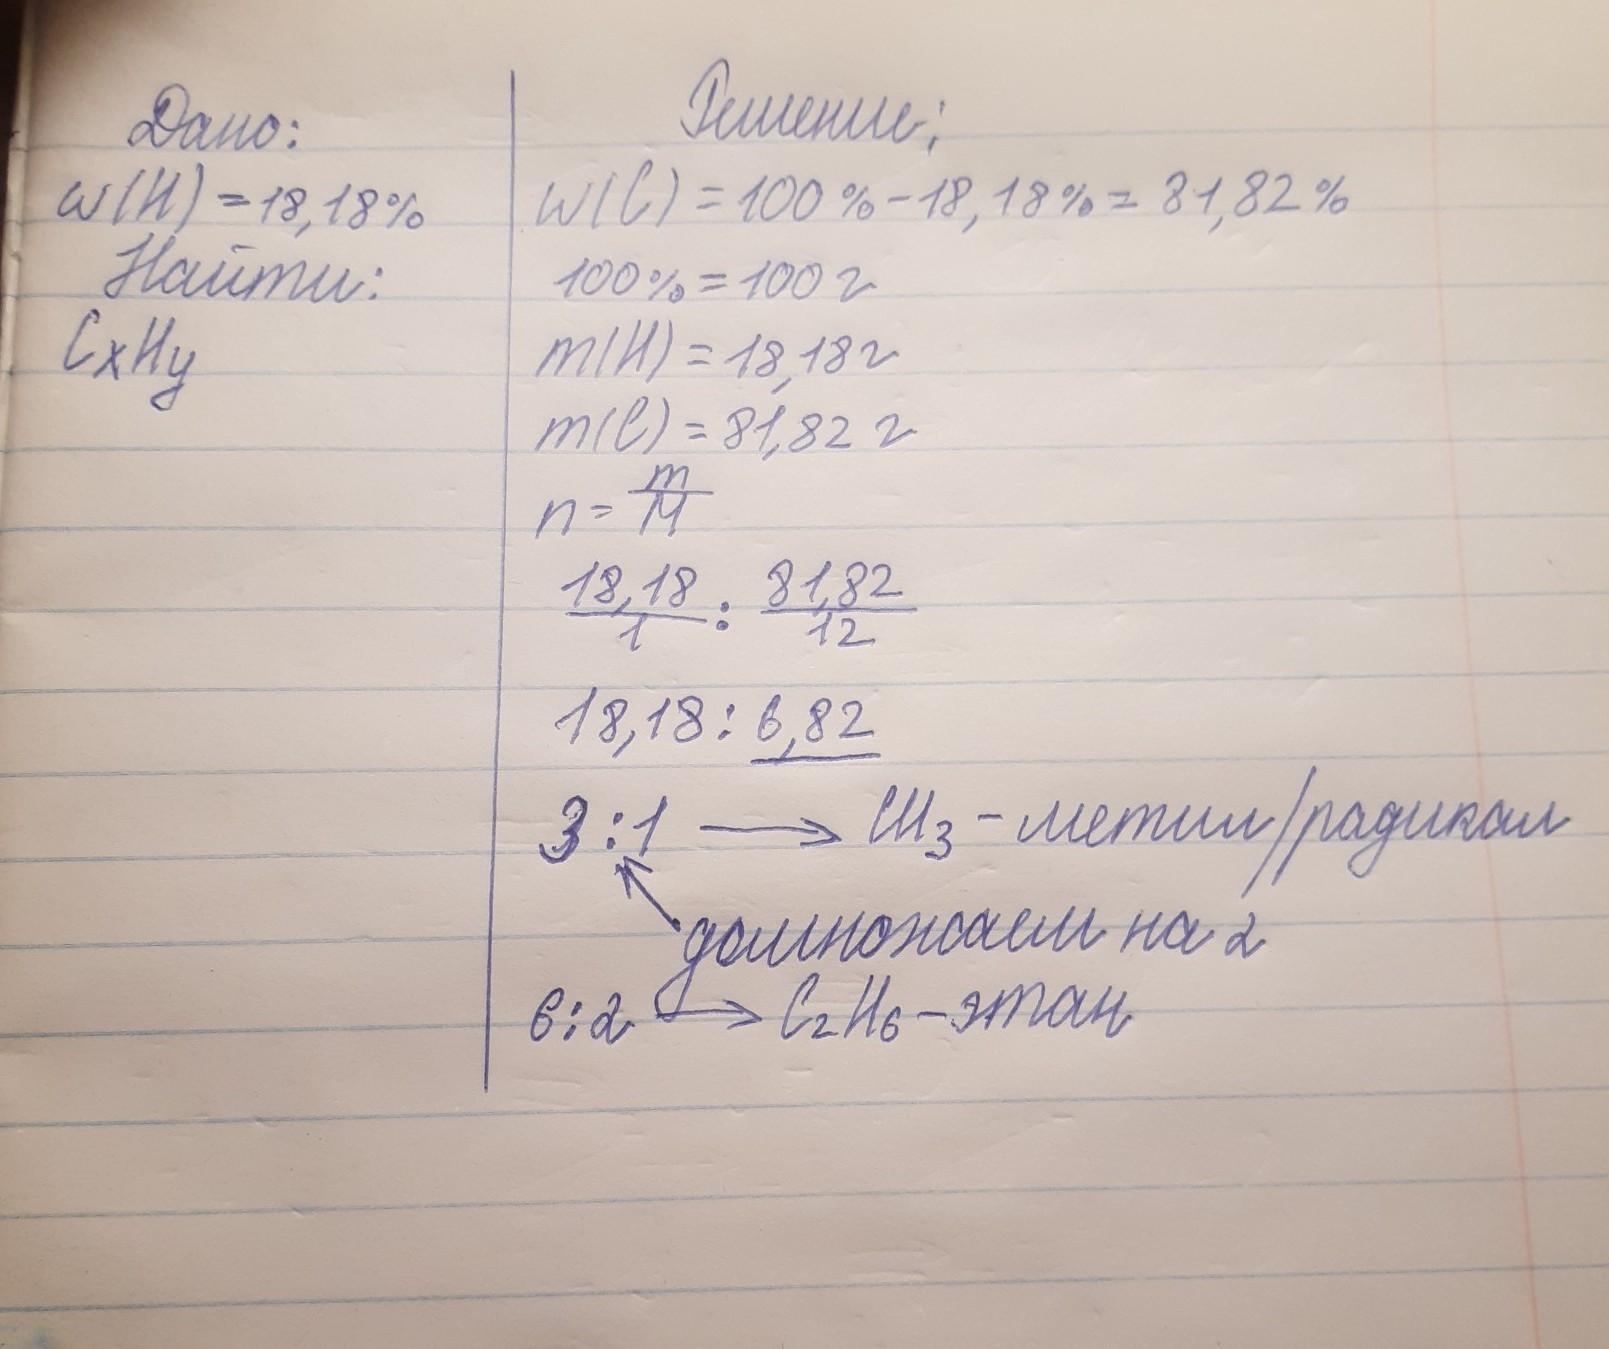 Дано:
w(H) = 18,18%
Найти:
CxHy
Решение:
w(C) = 100% - 18,18% = 81,82%
100% = 100г
m(H) = 18,18г
m(C) = 81,82 г
n = m/M
18,18/1 : 81,82/12
18,18 : 6,82
3 : 1 → CH₃ - метил/радикал
домножаем на 2
6 : 2 → C₂H₆ - этан